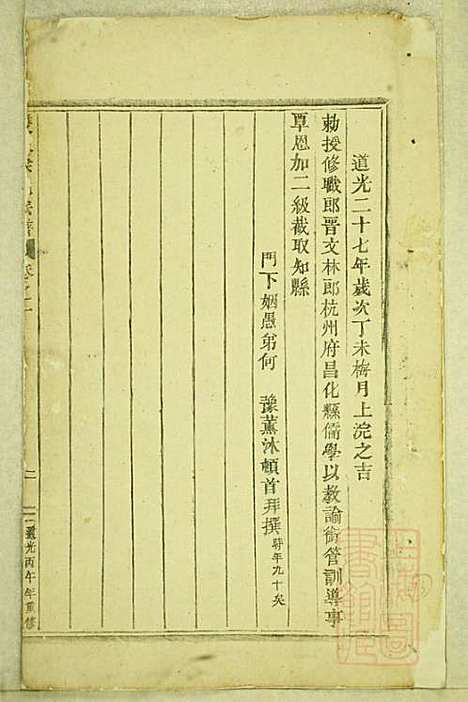 道光二十七年歲次丁未梅月上浣之吉
勅授修職郎晋文林郎杭州府昌化縣儒學以教諭銜管訓導事
覃恩加二級截取知縣
門下姻愚弟何 豫薰沐頓首拜撰時年九十矣
二
光丙午年重修